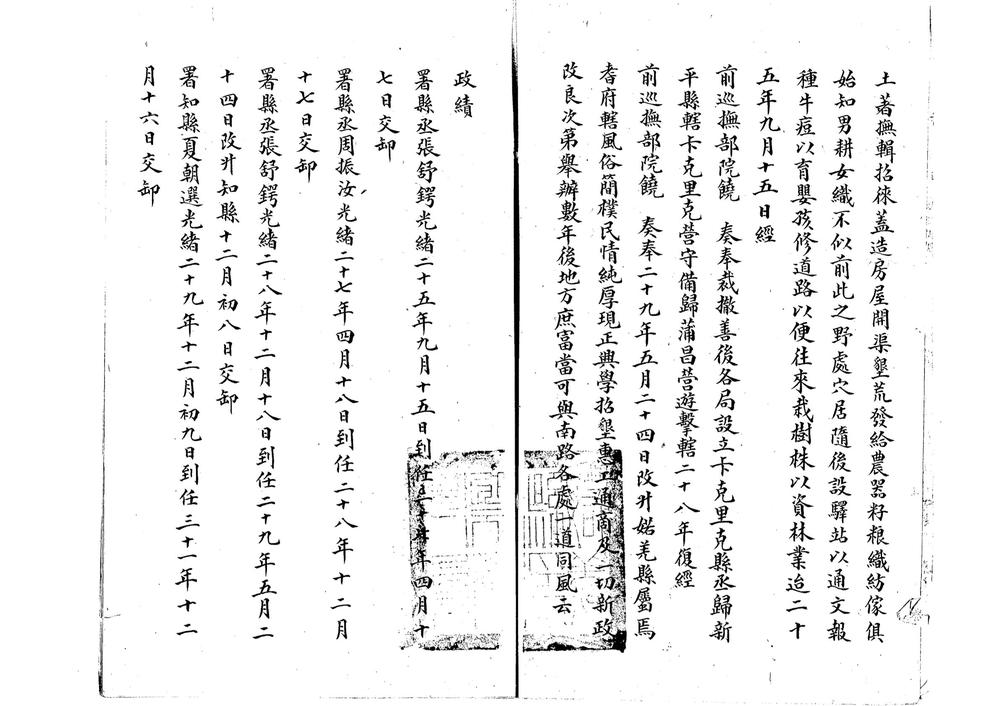 土著撫輯招徠蓋造房屋開渠墾荒發給農器籽粮織紡傢俱
始知男耕女織不似前此之野處穴居隨後設驛站以通文報
種牛痘以育嬰孩修道路以便往來栽樹株以資林業迨二十
五年九月十五日經
前巡撫部院饒 奏奉裁撤善後各局設立卡克里克縣丞歸新
平縣轄卡克里克營守備歸蒲昌營遊擊轄二十八年復經
前巡撫部院饒 奏奉二十九年五月二十四日改升婼羌縣屬焉
耆府轄風俗簡樸民情純厚現正興學招墾惠工通商及一切新政
改良次第舉辦數年後地方庶富當可與南路各處一道同風云
政績
署縣丞張舒鍔光緒二十五年九月十五日到任二十 年四月十
七日交卸
署縣丞周振汝光緒二十七年四月十八日到任二十八年十二月
十七日交卸
署縣丞張舒鍔光緒二十八年十二月十八日到任二十九年五月二
十四日改升知縣十二月初八日交卸
署知縣夏朝選光緒二十九年十二月初九日到任三十一年十二
月十六日交卸